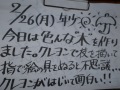 2/26(月)
今日は色んな木を作り
ました。クレヨンで皮を描いて
指で絵の具をぬると不思議…
クレヨンがはじいて面白い!!